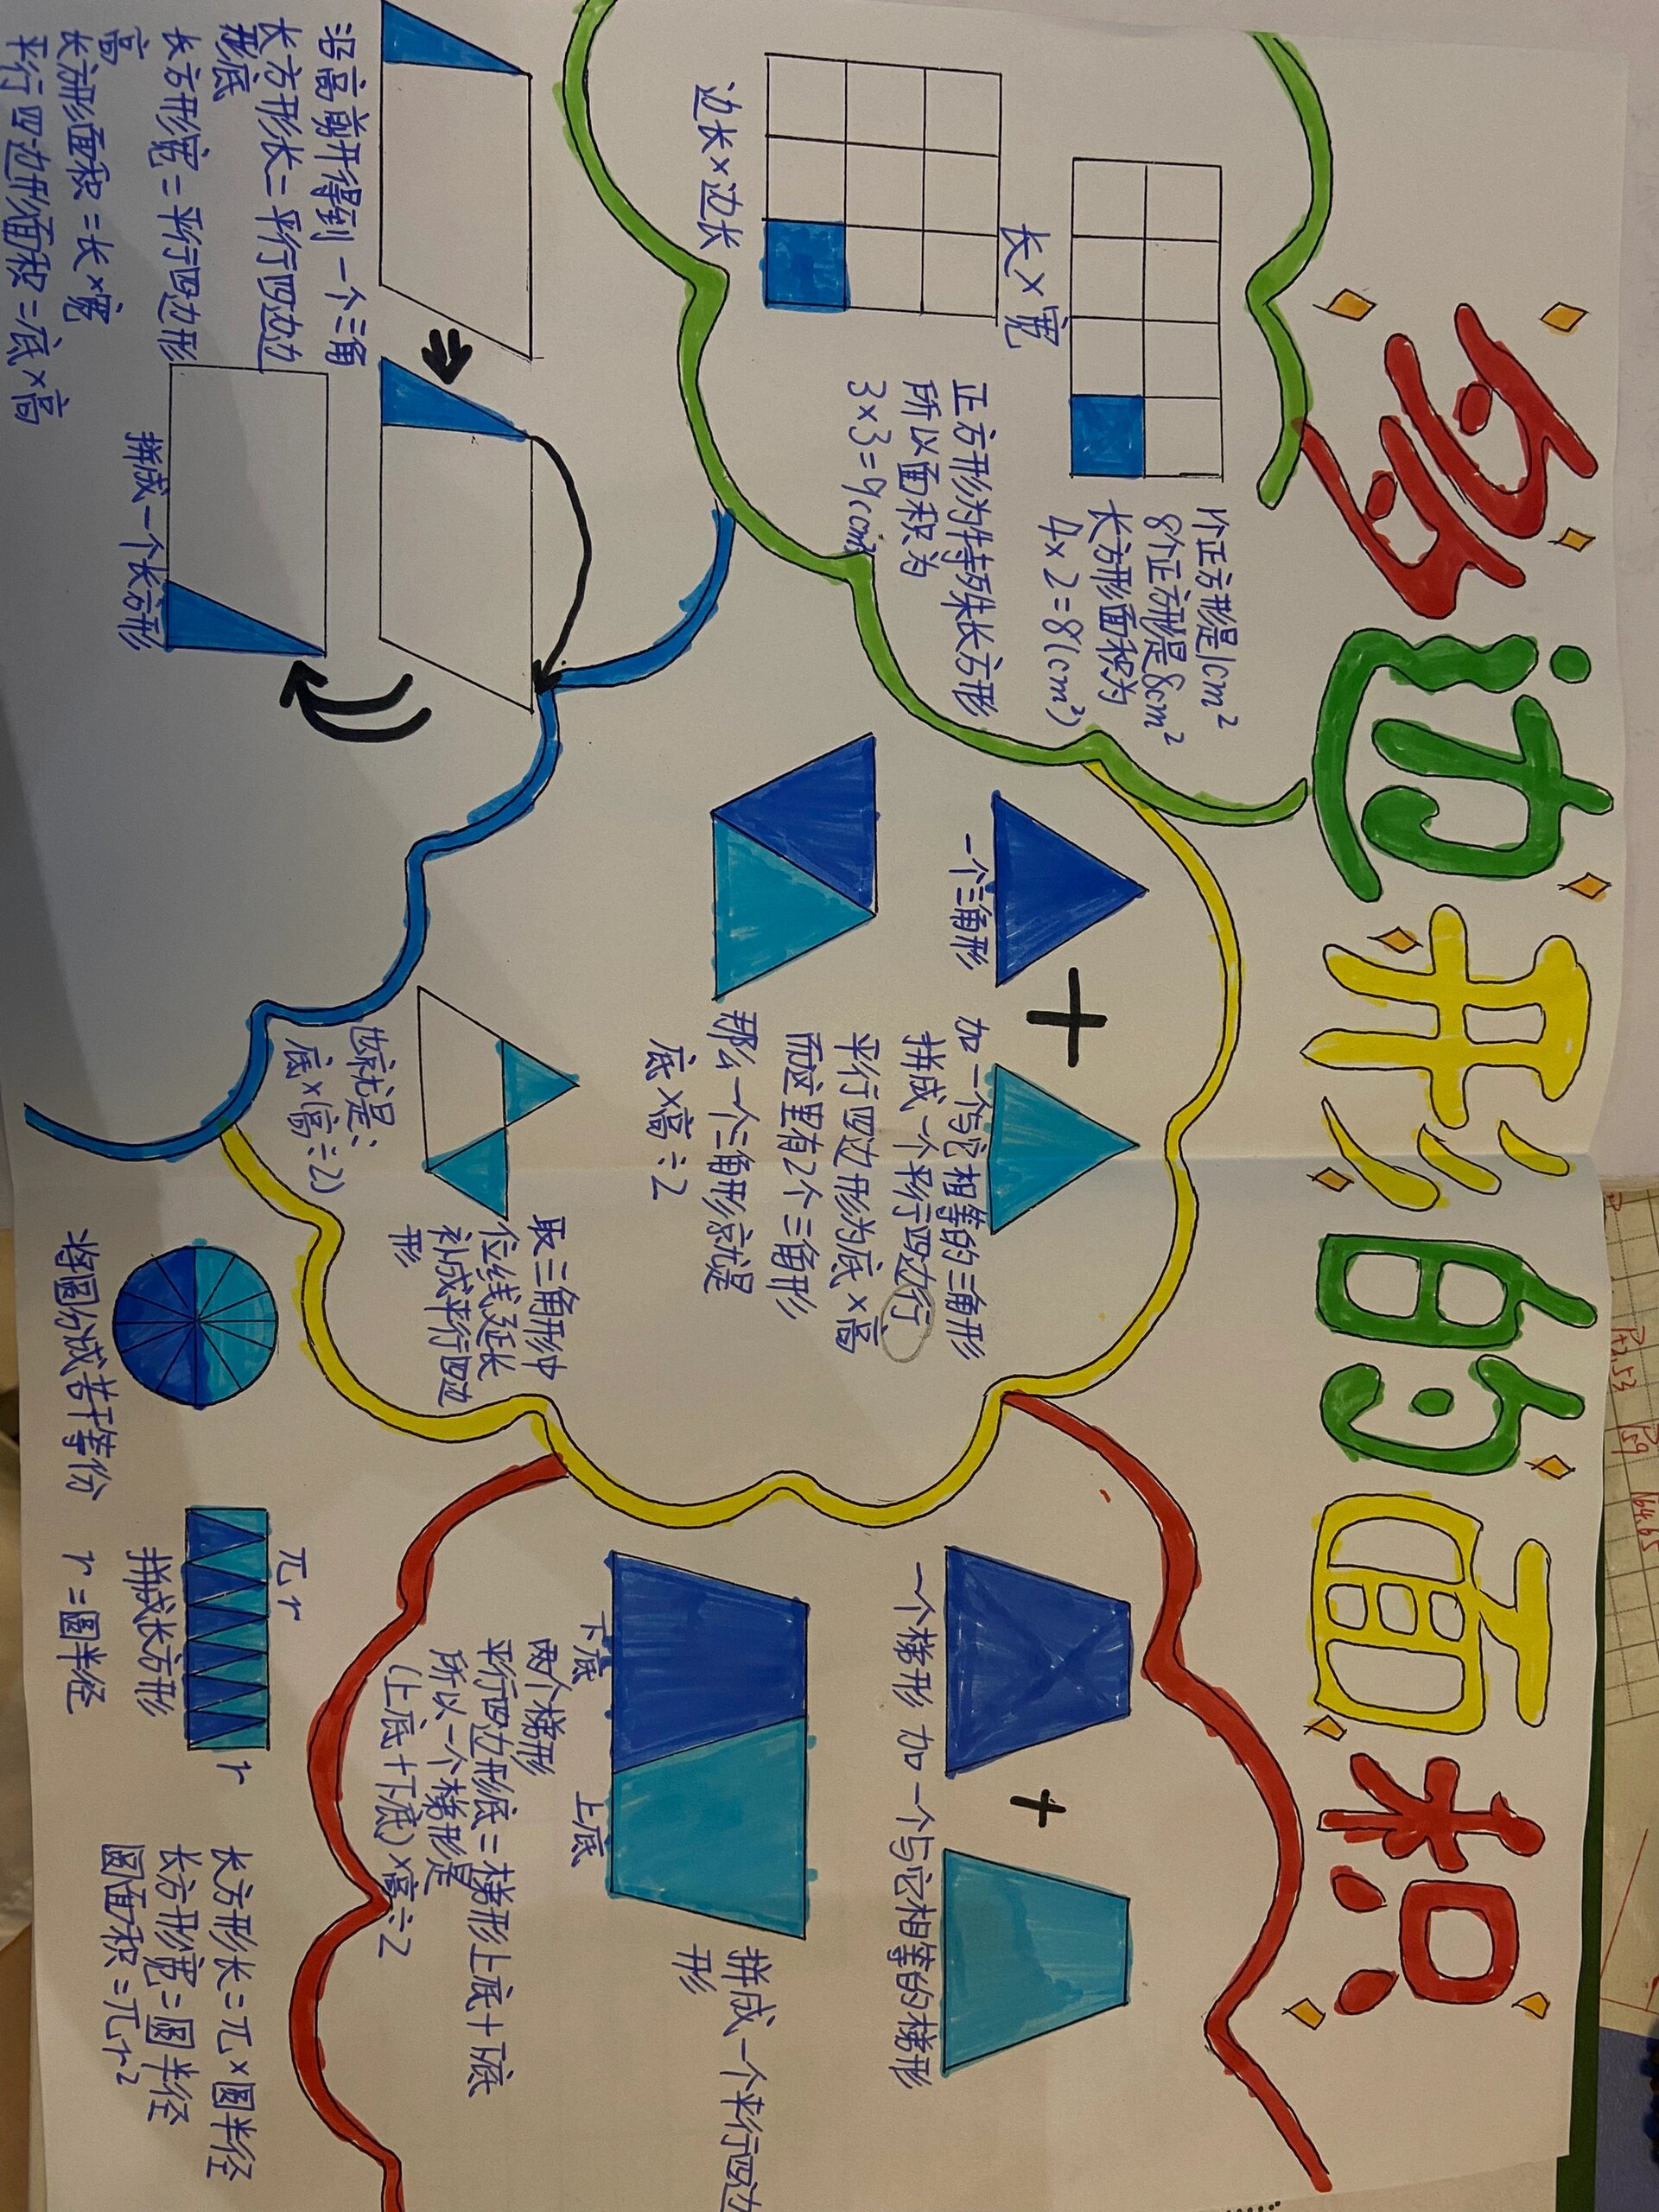 多边形的面积
1个正方形是1cm²
8个正方形是8cm²
长方形面积为
4×2=8(cm²)
长×宽
正方形为特殊长方形
所以面积为
3×3=9(cm²)
边长×边长
沿高剪开得到一个三角
长方形长=平行四边
形底
长方形宽=平行四边形
高
长方形面积=长×宽
平行四边形面积=底×高
拼成一个长方形
一个三角形
加一个与它相等的三角形
拼成一个平行四边行
平行四边形为底×高
而这里有2个三角形
那么一个三角形就是
底×高÷2
取三角形中
位线延长
补成平行四边
形
也就是:
底×(高÷2)
一个梯形 加一个与它相等的梯形
拼成一个平行四边
形
下底
上底
两个梯形
平行四边形底=梯形上底+下底
所以一个梯形是
(上底+下底)×高÷2
将圆分成若干等份
πr
r
拼成长方形
r=圆半径
长方形长=π×圆半径
长方形宽=圆半径
圆面积=πr²